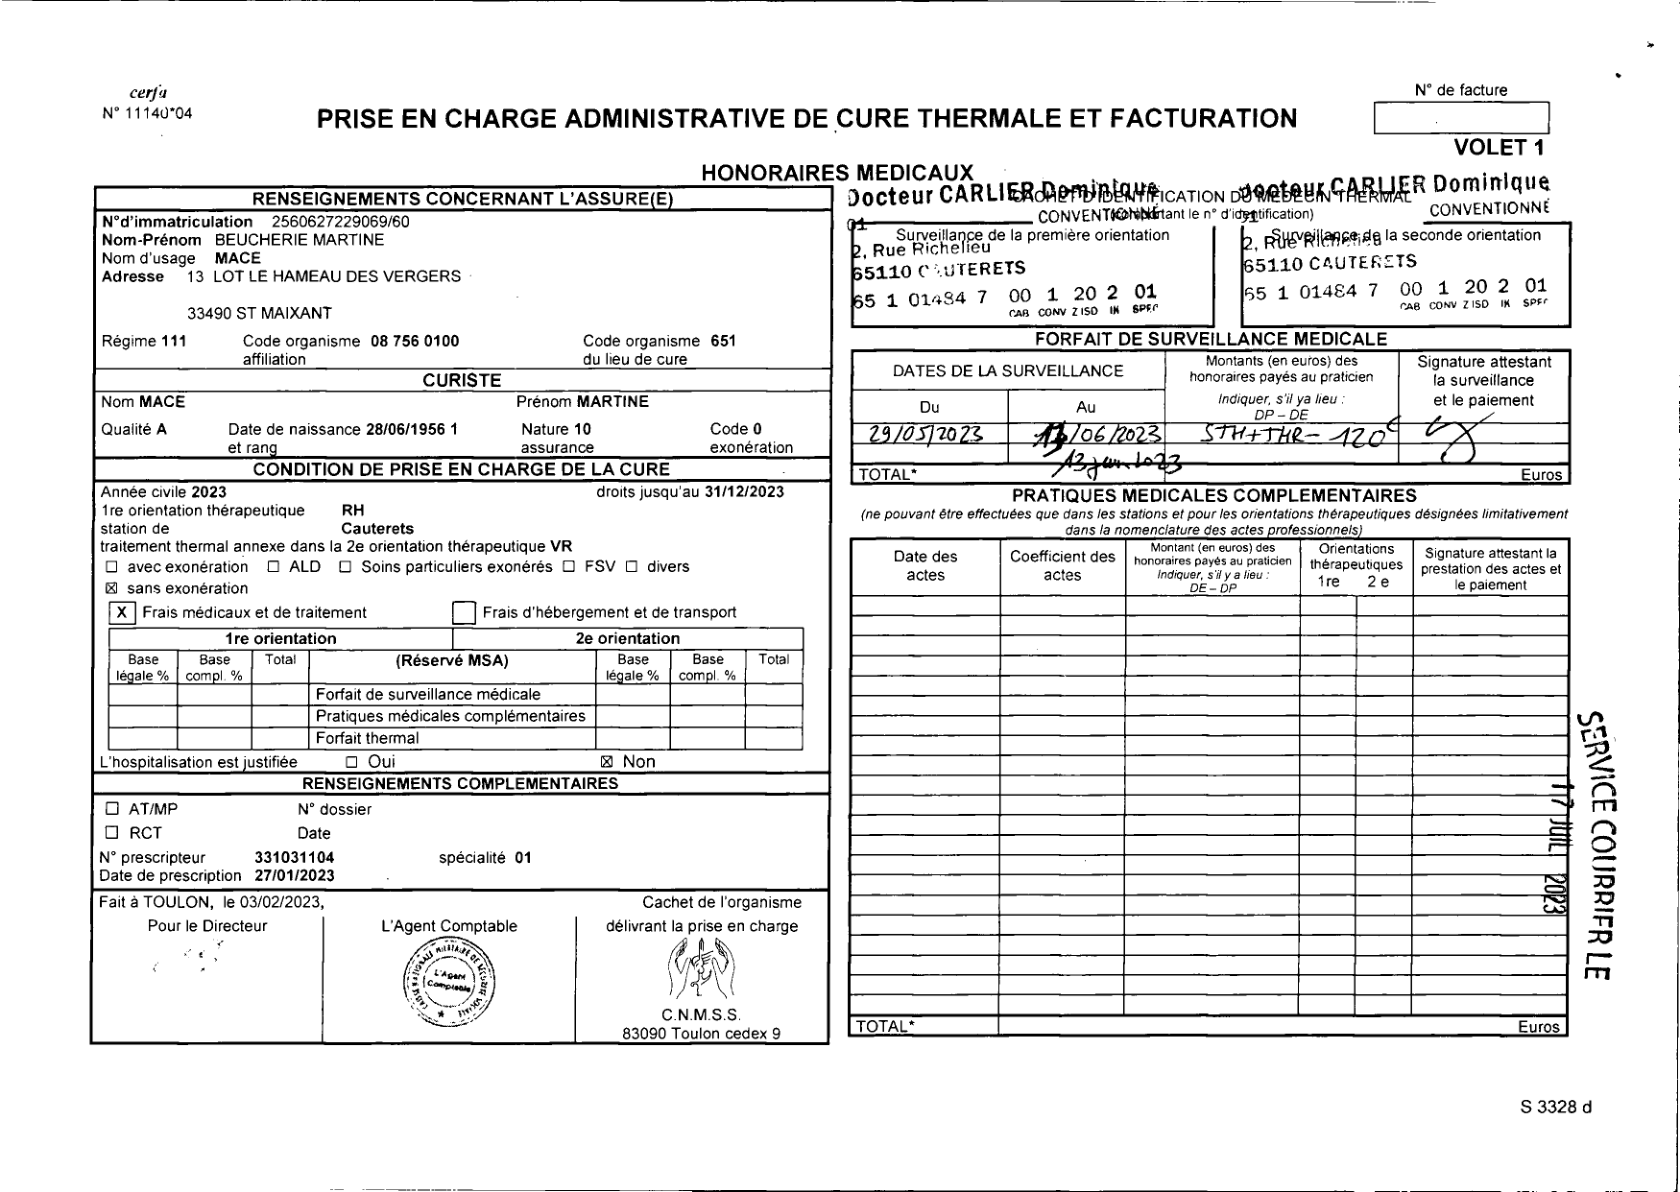 cerfa
N° 11140*04
PRISE EN CHARGE ADMINISTRATIVE DE CURE THERMALE ET FACTURATION
N° de facture
VOLET 1
HONORAIRES MEDICAUX
RENSEIGNEMENTS CONCERNANT L'ASSURE(E)
N°d'immatriculation 2560627229069/60
Nom-Prénom BEUCHERIE MARTINE
Nom d'usage MACE
Adresse 13 LOT LE HAMEAU DES VERGERS
33490 ST MAIXANT
Régime 111 Code organisme 08 756 0100 Code organisme 651
affiliation du lieu de cure
CURISTE
Nom MACE Prénom MARTINE
Qualité A Date de naissance 28/06/1956 1 Nature 10 Code 0
et rang assurance exonération
CONDITION DE PRISE EN CHARGE DE LA CURE
Année civile 2023 droits jusqu'au 31/12/2023
1re orientation thérapeutique RH
station de Cauterets
traitement thermal annexe dans la 2e orientation thérapeutique VR
☐ avec exonération ☐ ALD ☐ Soins particuliers exonérés ☐ FSV ☐ divers
☒ sans exonération
X Frais médicaux et de traitement ☐ Frais d'hébergement et de transport
1re orientation 2e orientation
Base Base Total (Réservé MSA) Base Base Total
légale % compl. % légale % compl. %
Forfait de surveillance médicale
Pratiques médicales complémentaires
Forfait thermal
L'hospitalisation est justifiée ☐ Oui ☒ Non
RENSEIGNEMENTS COMPLEMENTAIRES
☐ AT/MP N° dossier
☐ RCT Date
N° prescripteur 331031104 spécialité 01
Date de prescription 27/01/2023
Fait à TOULON, le 03/02/2023, Cachet de l'organisme
Pour le Directeur L'Agent Comptable délivrant la prise en charge
CAISSE NATIONALE MILITAIRE DE SECURITE SOCIALE
L'Agent
Comptable
C.N.M.S.S.
83090 Toulon cedex 9
Docteur CARLIER Dominique
CACHET D'IDENTIFICATION DU MEDECIN THERMAL
Docteur CARLIER Dominique
CONVENTIONNÉ
(comportant le n° d'identification)
CONVENTIONNÉ
01
01
Surveillance de la première orientation
Surveillance de la seconde orientation
2, Rue Richelieu
2, Rue Richelieu
65110 CAUTERETS
65110 CAUTERETS
65 1 01484 7 00 1 20 2 01
65 1 01484 7 00 1 20 2 01
CAB CONV Z ISD IK SPEC
CAB CONV Z ISD IK SPEC
FORFAIT DE SURVEILLANCE MEDICALE
DATES DE LA SURVEILLANCE
Du Au
Montants (en euros) des
honoraires payés au praticien
Indiquer, s'il ya lieu :
DP – DE
Signature attestant
la surveillance
et le paiement
29/05/2023 13/06/2023 STH+THR- 120€
13 juin 2023
TOTAL* Euros
PRATIQUES MEDICALES COMPLEMENTAIRES
(ne pouvant être effectuées que dans les stations et pour les orientations thérapeutiques désignées limitativement
dans la nomenclature des actes professionnels)
Date des
actes
Coefficient des
actes
Montant (en euros) des
honoraires payés au praticien
Indiquer, s'il y a lieu :
DE – DP
Orientations
thérapeutiques
1re 2 e
Signature attestant la
prestation des actes et
le paiement
TOTAL* Euros
SERVICE COURRIER LE
17 JUIL 2023
S 3328 d